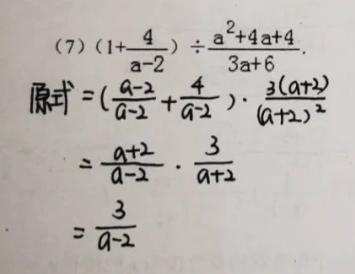 (7) (1+\frac{4}{a-2}) ÷ \frac{a^2+4a+4}{3a+6}.
原式=(\frac{a-2}{a-2}+\frac{4}{a-2})·\frac{3(a+2)}{(a+2)^2}
=\frac{a+2}{a-2}·\frac{3}{a+2}
=\frac{3}{a-2}